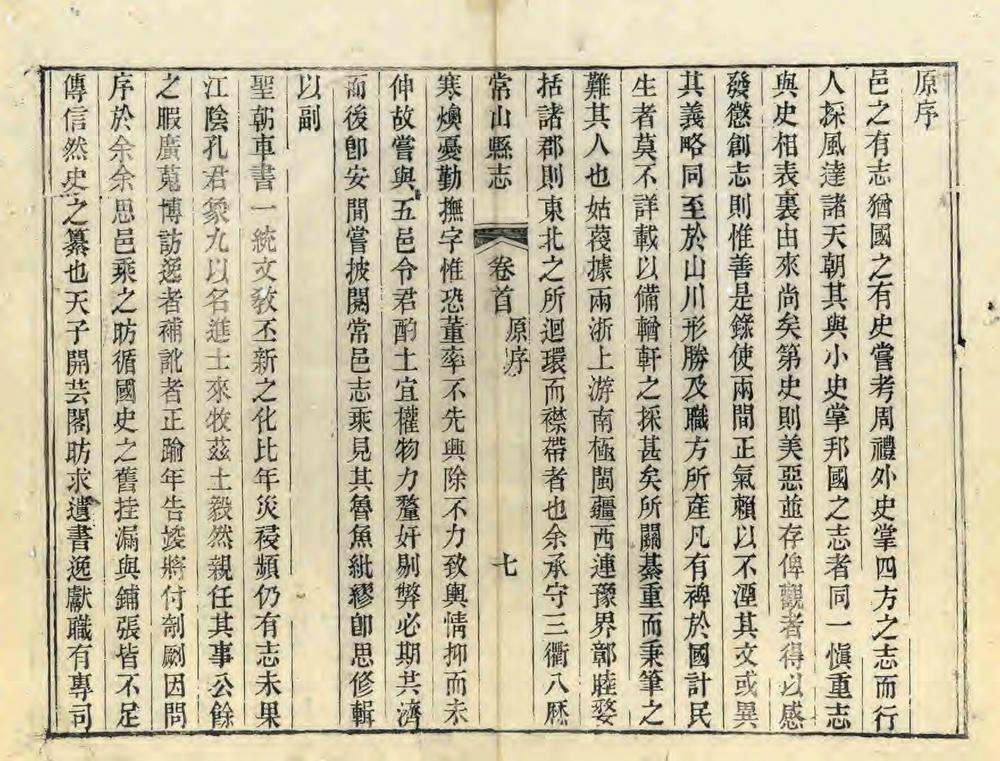 原序
邑之有志猶國之有史嘗考周禮外史掌四方之志而行
人採風達諸天朝其與小史掌邦國之志者同一慎重志
與史相表裏由來尚矣第史則美惡並存俾觀者得以感
發懲創志則惟善是錄使兩間正氣賴以不湮其文或異
其義略同至於山川形勝及職方所產凡有裨於國計民
生者莫不詳載以備輶軒之採甚矣所關綦重而秉筆之
難其人也姑蔑據兩浙上游南極閩疆西連豫界鄣睦婺
括諸郡則東北之所迴環而襟帶者也余承守三衢八歷
常山縣志 卷首 原序 七
寒燠憂勤撫字惟恐董率不先興除不力致輿情抑而未
伸故嘗與五邑令君酌土宜權物力釐奸剔弊必期共濟
而後卽安間嘗披閱常邑志乘見其魯魚紕繆卽思修輯
以副
聖朝車書一統文敎丕新之化比年災祲頻仍有志未果
江陰孔君象九以名進士來牧茲土毅然親任其事公餘
之暇廣蒐博訪逸者補訛者正踰年告竣將付剞劂因問
序於余余思邑乘之昉循國史之舊挂漏與鋪張皆不足
傳信然史之纂也天子開芸閣昉求遺書逸獻職有專司